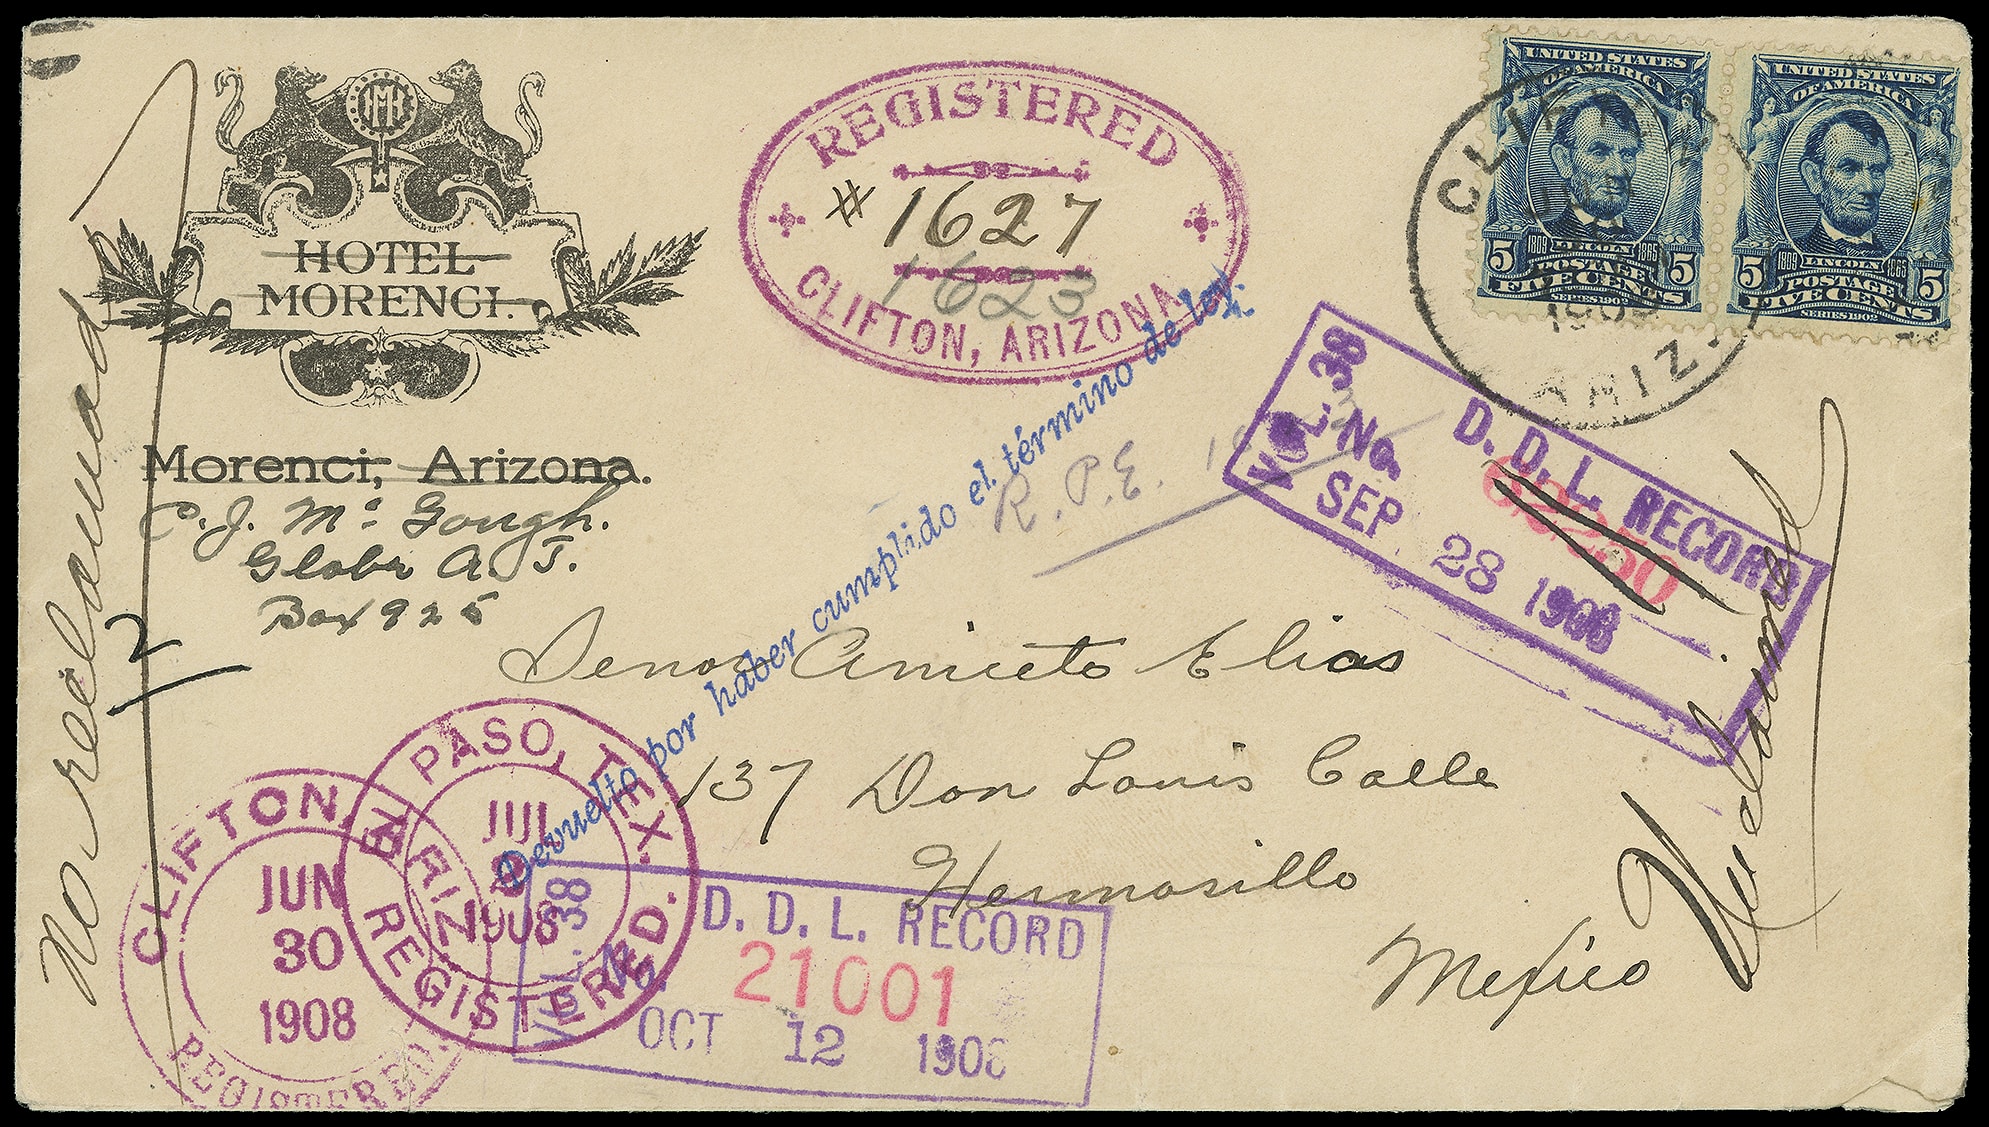 HMH
HOTEL
MORENCI.
Morenci, Arizona.
C. J. Mc Gough.
Globe A. T.
Box 925
No reclamado
2
REGISTERED
# 1627
1623
CLIFTON, ARIZONA
UNITED STATES
OF AMERICA
1809 LINCOLN 1865
5 POSTAGE 5
FIVE CENTS
SERIES 1902
UNITED STATES
OF AMERICA
1809 LINCOLN 1865
5 POSTAGE 5
FIVE CENTS
SERIES 1902
ARIZ.
Devuelto por haber cumplido el término de ley.
R.P.E.
VOL. 38
D. D. L. RECORD
No. 62250
SEP 28 1908
Senor Aniceto Elias
137 Don Louis Calle
Hermosillo
Mexico
Reclamado
CLIFTON, ARIZ.
JUN
30
1908
REGISTERED.
EL PASO, TEX.
JUL
1908
REGISTERED.
VOL. 38
D. D. L. RECORD
No. 21001
OCT 12 1908